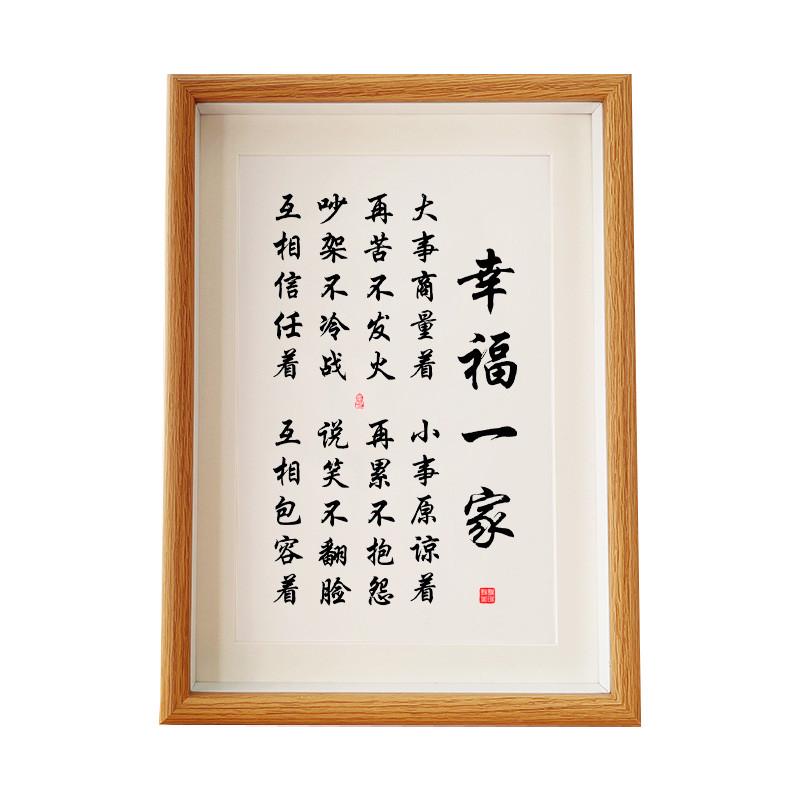 幸福一家
大事商量着 小事原谅着
再苦不发火 再累不抱怨
吵架不冷战 说笑不翻脸
互相信任着 互相包容着